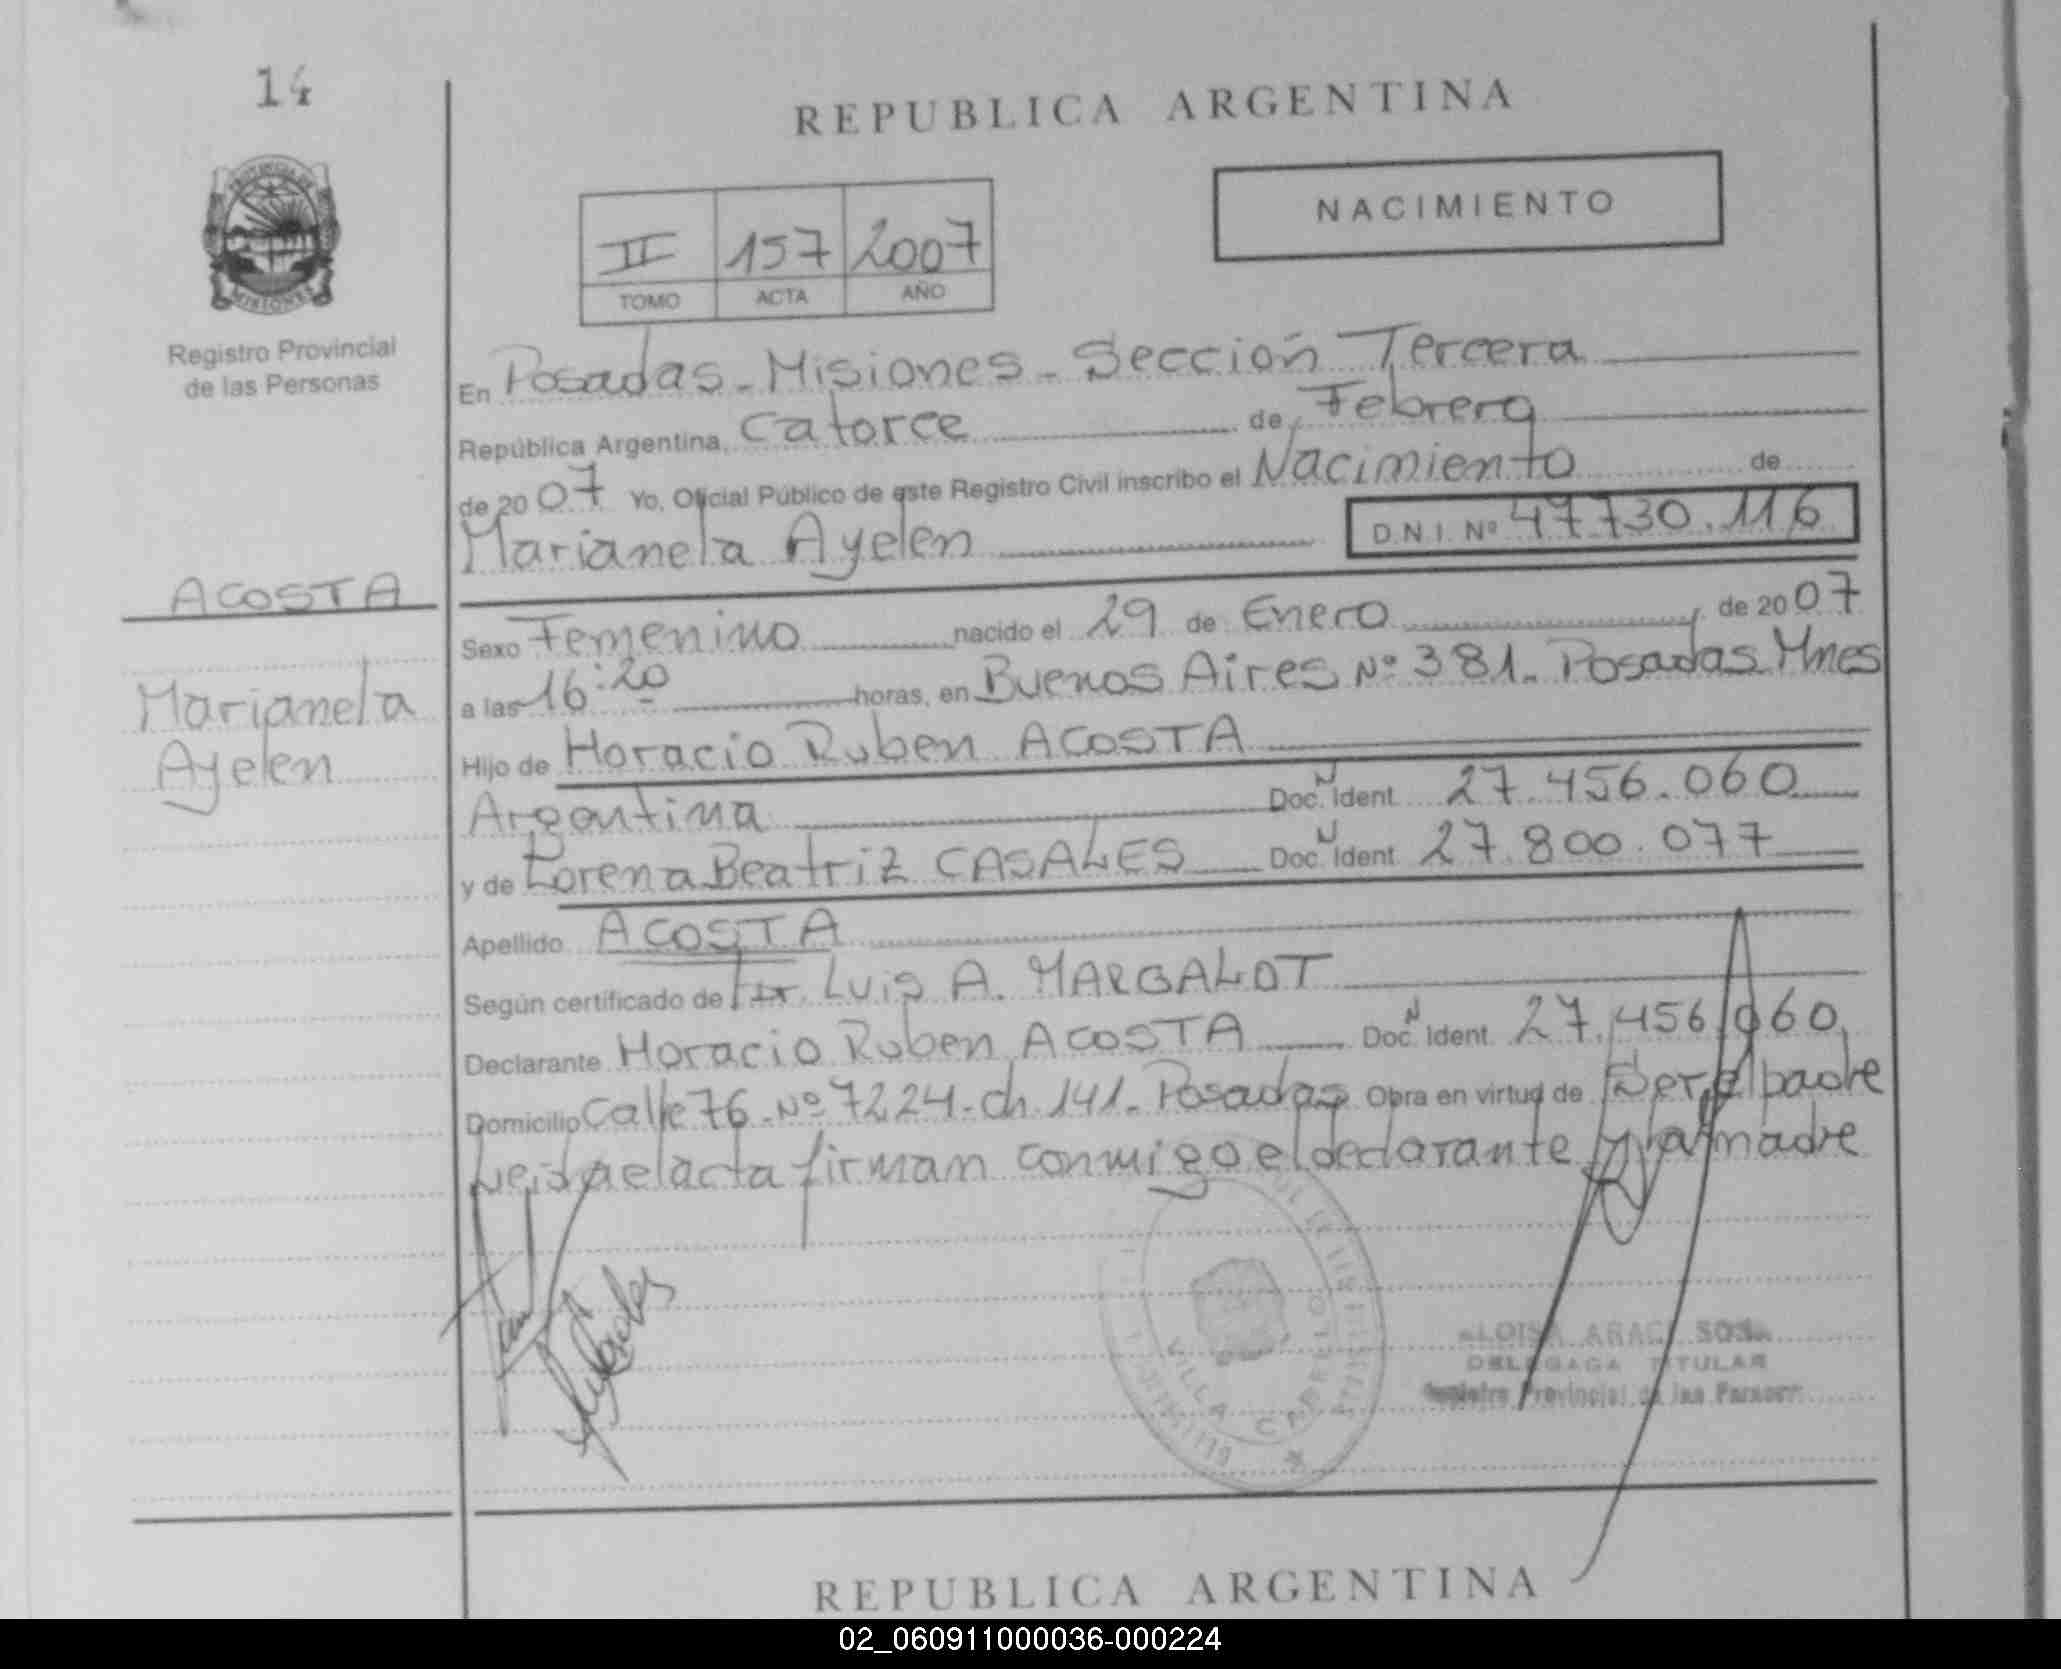 14
REPUBLICA ARGENTINA
NACIMIENTO
II 157 2007
TOMO ACTA AÑO
Registro Provincial
de las Personas
En Posadas - Misiones - Sección Tercera
República Argentina, Catorce de Febrero
de 2007 Yo, Oficial Público de este Registro Civil inscribo el Nacimiento de
Marianela Ayelen D.N.I. Nº 47730.116
ACOSTA
Marianela
Ayelen
Sexo Femenino nacido el 29 de Enero de 2007
a las 16:20 horas, en Buenos Aires Nº 381. Posadas Mnes
Hijo de Horacio Ruben ACOSTA
Argentina Doc. N Ident. 27.456.060
y de Lorena Beatriz CASALES Doc. N Ident. 27.800.077
Apellido ACOSTA
Según certificado de Dr. Luis A. MARGALOT
Declarante Horacio Ruben ACOSTA Doc. N Ident. 27.456.060
Domicilio Calle 76 - Nº 7224 - ch. 141 - Posadas Obra en virtud de Ser el padre
Leida el acta firman conmigo el declarante y la madre
VILLA CABELLO
DELEGADA TITULAR
Registro Provincial de las Personas
REPUBLICA ARGENTINA
02_060911000036-000224